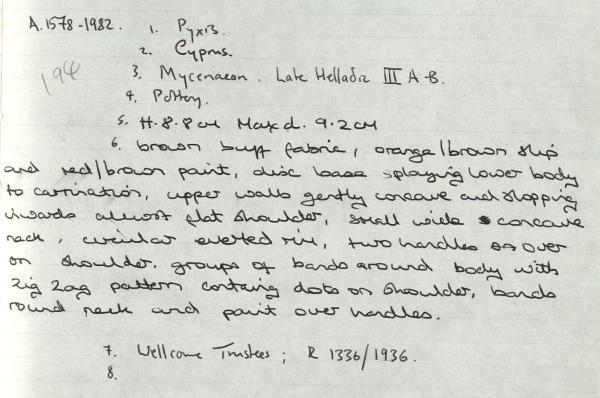 A.1578-1982. 1. Pyxis.
2. Cyprus.
194
3. Mycenaean. Late Helladic III A-B.
4. Pottery.
5. H. 8.8cm Max d. 9.2cm
6. brown buff fabric, orange/brown slip
and red/brown paint, disc base splaying lower body
to carination, upper walls gently concave and slopping
inwards almost flat shoulder, small wide concave
neck, circular everted rim, two handles over
on shoulder. groups of bands around body with
zig zag pattern containg dots on shoulder, bands
round neck and paint over handles.
7. Wellcome Trustees; R 1336/1936.
8.